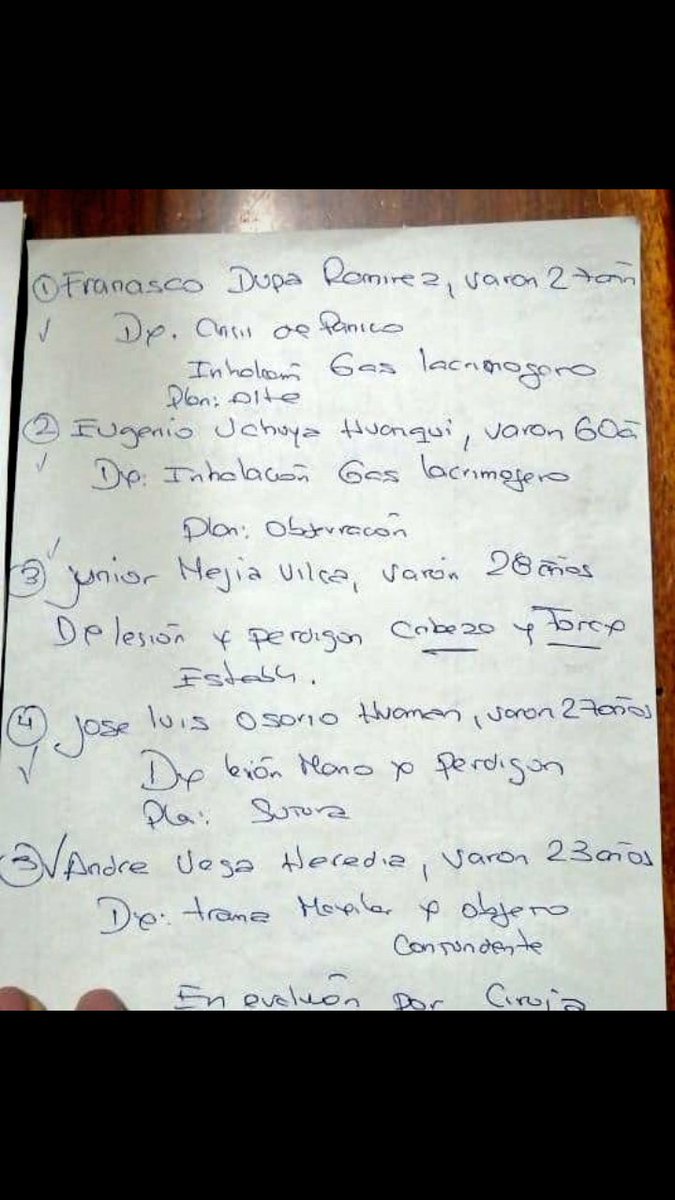 ① Francisco Dupa Ramirez, varon 27añ
Dx. Crisis de Panico
Inhalación Gas lacrimogeno
Plan: Alta
② Eugenio Uchuya Huanqui, varon 60a
Dx: Inhalación Gas lacrimogeno
Plan: Observación
③ Junior Mejia Vilca, varón 28 años
Dx lesión x perdigon Cabeza y Torax
Estab.
④ Jose Luis Osorio Huaman, varon 27años
Dx lesión Mano x perdigon
Pla: Sutura
⑤ Andre Vega Heredia, varon 23años
Dx: trauma Maxilar x objeto
Contundente
En evalución por Ciruja